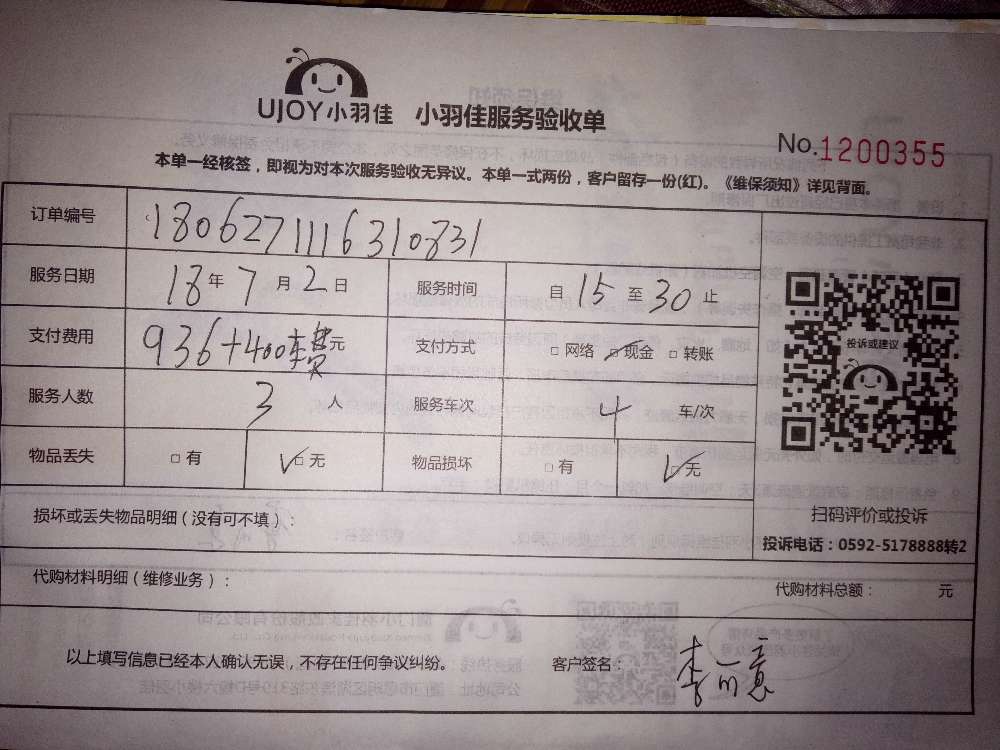 UJOY小羽佳 小羽佳服务验收单
No.1200355
本单一经核签，即视为对本次服务验收无异议。本单一式两份，客户留存一份(红)。《维保须知》详见背面。
订单编号 1806271116310831
服务日期 18年7月2日 服务时间 自15至30止
支付费用 936+400车费元 支付方式 □网络 ☑现金 □转账
服务人数 3人 服务车次 4车/次
物品丢失 □有 ☑无 物品损坏 □有 ☑无
投诉或建议
扫码评价或投诉
投诉电话：0592-5178888转2
损坏或丢失物品明细（没有可不填）：
代购材料明细（维修业务）： 代购材料总额： 元
以上填写信息已经本人确认无误，不存在任何争议纠纷。 客户签名：李可意